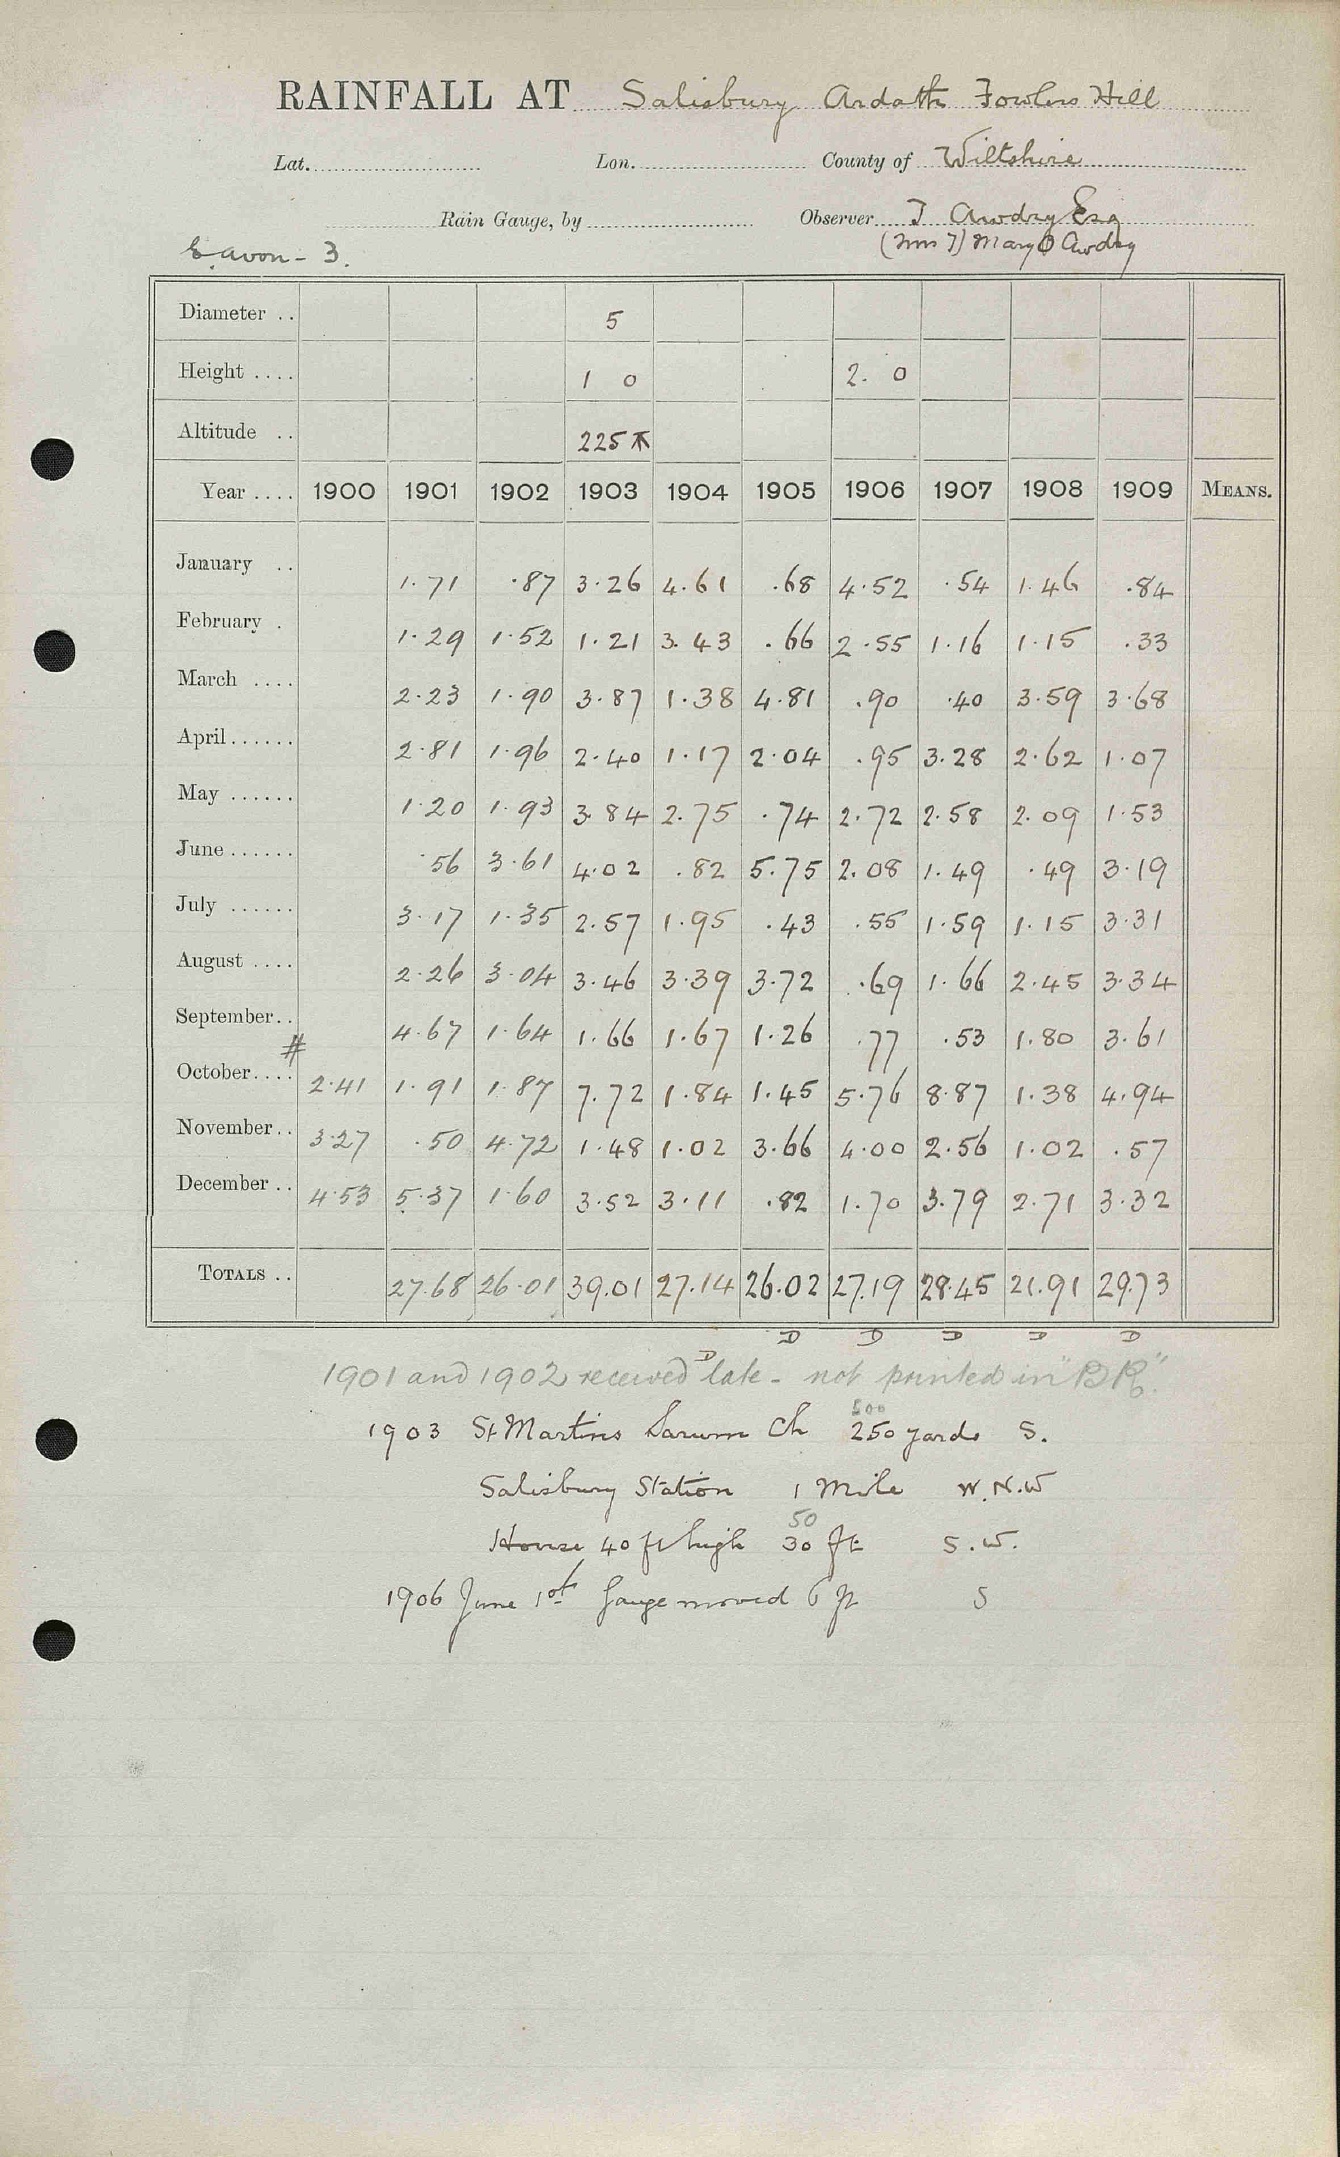 RAINFALL AT Salisbury Ardath Fowlers Hill
Lat. Lon. County of Wiltshire
Rain Gauge, by Observer T Awdry Esq
E. Avon - 3. (Mrs T) Mary O Awdry
Diameter .. 5
Height .... 1 0 2. 0
Altitude .. 225
Year .... 1900 1901 1902 1903 1904 1905 1906 1907 1908 1909 MEANS.
January .. 1.71 .87 3.26 4.61 .68 4.52 .54 1.46 .84
February . 1.29 1.52 1.21 3.43 .66 2.55 1.16 1.15 .33
March .... 2.23 1.90 3.87 1.38 4.81 .90 .40 3.59 3.68
April...... 2.81 1.96 2.40 1.17 2.04 .95 3.28 2.62 1.07
May ...... 1.20 1.93 3.84 2.75 .74 2.72 2.58 2.09 1.53
June...... .56 3.61 4.02 .82 5.75 2.08 1.49 .49 3.19
July ...... 3.17 1.35 2.57 1.95 .43 .55 1.59 1.15 3.31
August .... 2.26 3.04 3.46 3.39 3.72 .69 1.66 2.45 3.34
September.. 4.67 1.64 1.66 1.67 1.26 .77 .53 1.80 3.61
#
October.... 2.41 1.91 1.87 7.72 1.84 1.45 5.76 8.87 1.38 4.94
November.. 3.27 .50 4.72 1.48 1.02 3.66 4.00 2.56 1.02 .57
December .. 4.53 5.37 1.60 3.52 3.11 .82 1.70 3.79 2.71 3.32
TOTALS .. 27.68 26.01 39.01 27.14 26.02 27.19 28.45 21.91 29.73
D D D D D D
1901 and 1902 received late - not printed in "B.R."
500
1903 St Martins Sarum Ch 250 yards S.
Salisbury Station 1 Mile W.N.W
50
House 40 ft high 30 ft S.W.
1906 June 1st Gauge moved 6 ft S